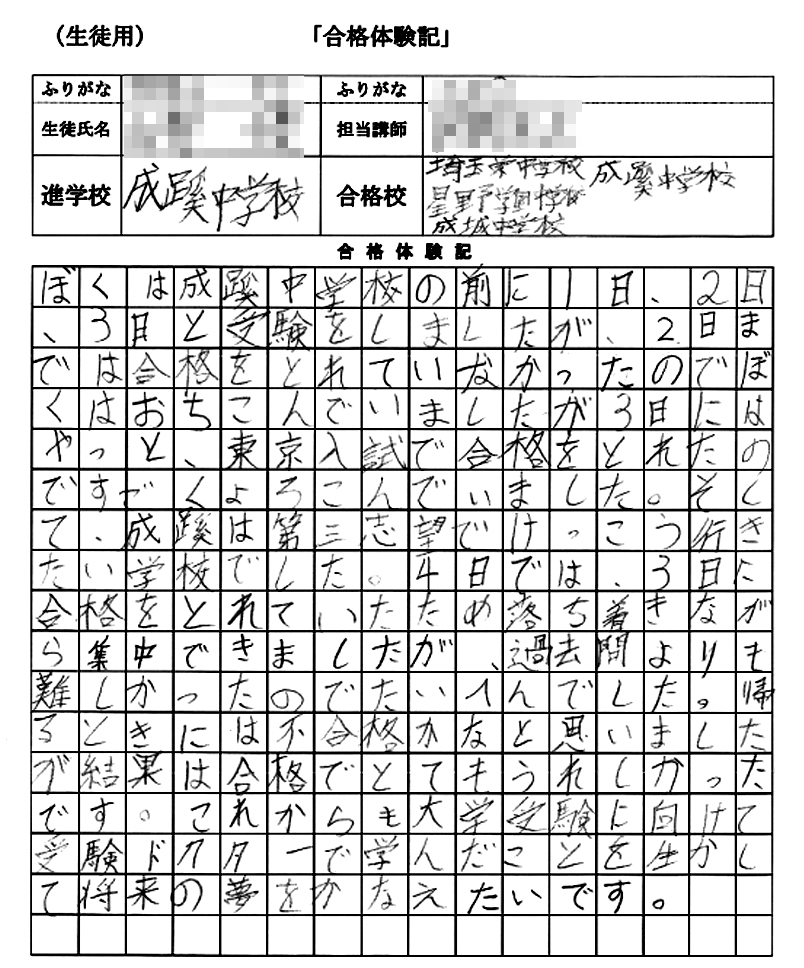 （生徒用）　「合格体験記」
ふりがな　ふりがな
生徒氏名　担当講師
進学校　成蹊中学校　合格校　埼玉栄中学校　成蹊中学校
星野学園中学校
成城中学校
合格体験記
ぼくは成蹊中学校の前に1日、2日
、3日と受験をしましたが、2日ま
では合格をとれていなかったのでぼ
くはおちこんでいましたが3日には
やっと、東京入試で合格をとれたの
ですごくよろこんでいました。そし
て、成蹊は第三志望でけっこう行き
たい学校でした。4日では、3日に
合格をとれていたため落ち着きなが
ら集中できましたが、過去問よりも
難しかったのでたいへんでした。帰
るときには不合格かなと思いました
が結果は合格でとてもうれしかった
です。これからも大学受験に向けて
受験ドクターで学んだことを生かし
て将来の夢をかなえたいです。